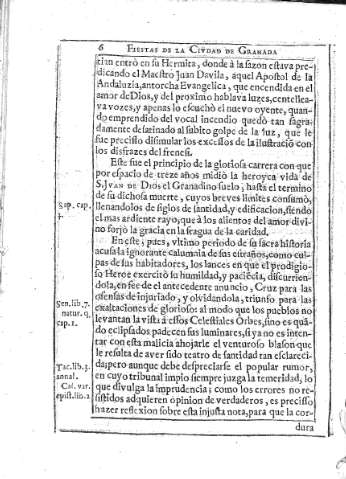 6 FIESTAS DE LA CIVDAD DE GRANADA
tian entrò en su Hermita, donde à la sazon estava pre-
dicando el Maestro Juan Davila, aquel Apostol de la
Andaluzia, antorcha Evangelica, que encendida en el
amor de Dios, y del proximo hablava luzes, centellea-
va vozes, y apenas lo escuchò el nuevo oyente, quan-
do emprendido del vocal incendio quedò tan sagra-
damente desatinado al subito golpe de la luz, que le
fue preciso disimular los excessos de la ilustraciò con
los disfrazes del frenesi.
Este fue el principio de la gloriosa carrera con que
por espacio de treze años midiò la heroyca vida de
S. JVAN DE DIOS el Granadino suelo, hasta el termino
de su dichosa muerte, cuyos breves limites consumò,
Sap. cap.
llenandolos de siglos de santidad, y edificacion, siendo
4.
el mas ardiente rayo, que à los alientos del amor divi-
no forjò la gracia en la fragua de la caridad.
En este, pues, vltimo periodo de su sacra historia
acusa la ignorante calumnia de sus estraños, como cul-
pas de sus habitadores, los lances en que el prodigio-
so Heroe exercitò su humildad, y paciècia, discurrien-
dola, en fee de el antecedente anuncio, Cruz para las
ofensas de injuriado, y olvidandola, triunfo para las
Sen. lib. 7.
exaltaciones de glorioso: al modo que los pueblos no
natur. q.
levantan la vista à essos Celestiales Orbes, sino es quã-
cap. 1.
do eclipsados padecen sus luminares, si ya no es inten-
tar con esta malicia ahojarle el venturoso blason que
le resulta de aver sido teatro de santidad tan esclareci-
Tac. lib. 3.
da; pero aunque debe despreciarse el popular rumor,
annal.
en cuyo tribunal impio siempre juzga la temeridad, lo
Cal. var.
que divulga la imprudencia; como los errores no re-
epist. lib. 2
sistidos adquieren opinion de verdaderos, es preciso
hazer reflexion sobre esta injusta nota, para que la cor-
dura